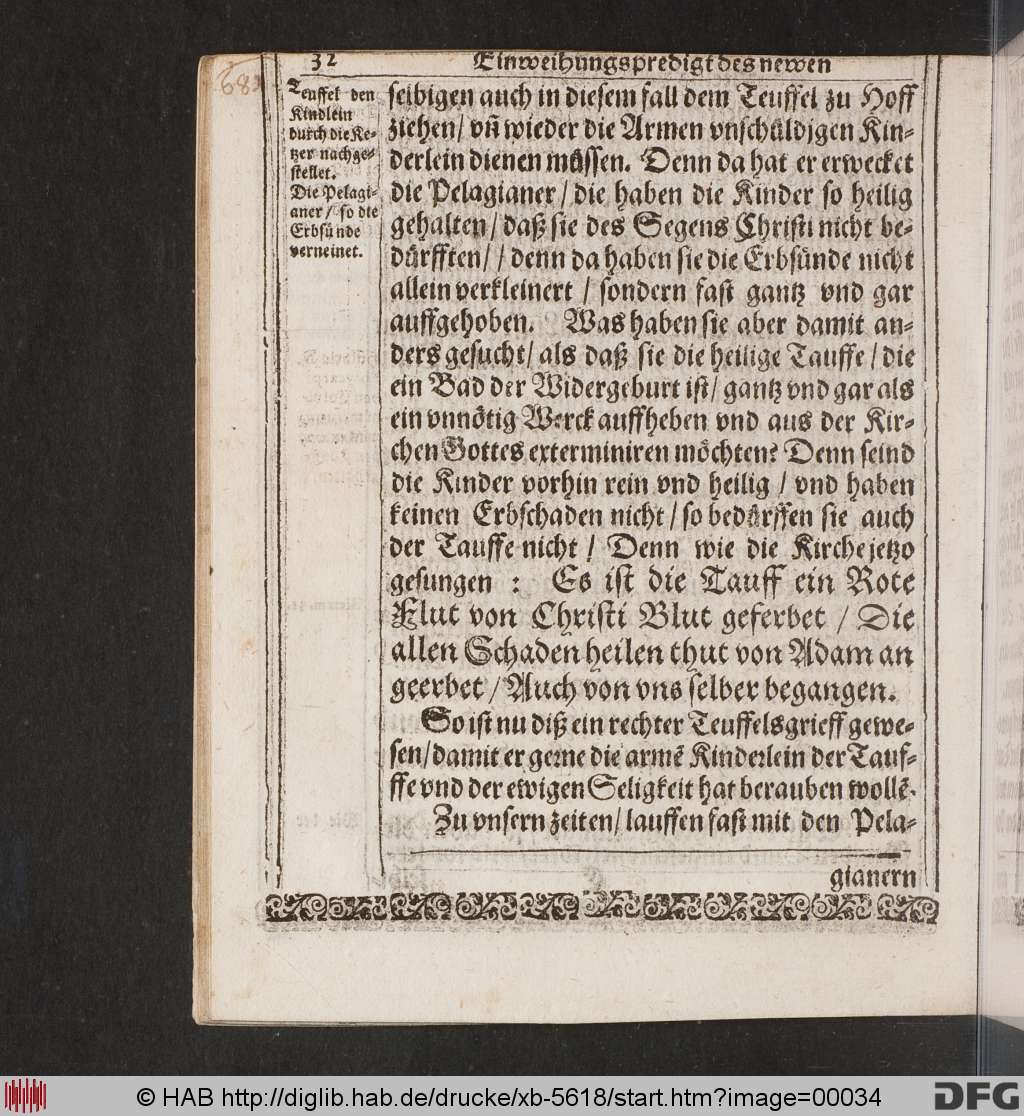 32 Einweihungspredigt des newen
Teuffel den
Kindlein
durch die Ke-
tzer nachge-
stellet.
Die Pelagi-
aner / so die
Erbsünde
verneinet.
selbigen auch in diesem fall dem Teuffel zu Hoff
ziehen / vñ wieder die Armen vnschüldigen Kin-
derlein dienen müssen. Denn da hat er erwecket
die Pelagianer / die haben die Kinder so heilig
gehalten / daß sie des Segens Christi nicht be-
dürfften / / denn da haben sie die Erbsünde nicht
allein verkleinert / sondern fast gantz vnd gar
auffgehoben. Was haben sie aber damit an-
ders gesucht / als daß sie die heilige Tauffe / die
ein Bad der Widergeburt ist / gantz vnd gar als
ein vnnötig Werck auffheben vnd aus der Kir-
chen Gottes exterminiren möchten? Denn seind
die Kinder vorhin rein vnd heilig / vnd haben
keinen Erbschaden nicht / so bedürffen sie auch
der Tauffe nicht / Denn wie die Kirche jetzo
gesungen : Es ist die Tauff ein Rote
Flut von Christi Blut geferbet / Die
allen Schaden heilen thut von Adam an
geerbet / Auch von vns selber begangen.
So ist nu diß ein rechter Teuffelsgrieff gewe-
sen / damit er gerne die armẽ Kinderlein der Tauf-
ffe vnd der ewigen Seligkeit hat berauben wollẽ.
Zu vnsern zeiten / lauffen fast mit den Pela-
gianern
© HAB http://diglib.hab.de/drucke/xb-5618/start.htm?image=00034
DFG